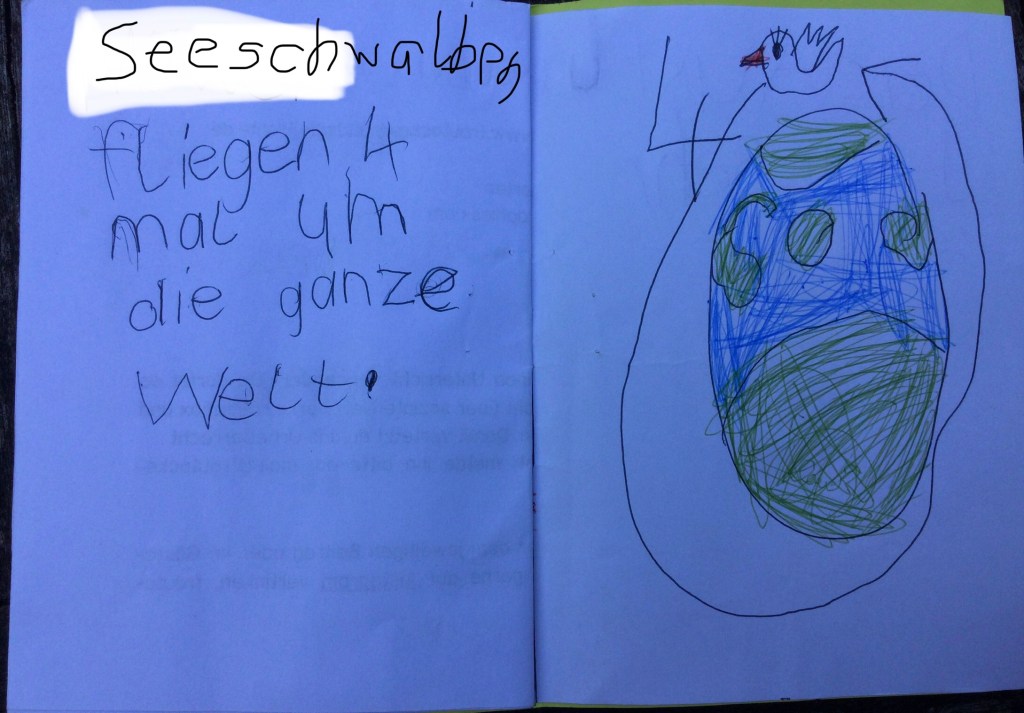 Seeschwalben
fliegen 4
mal um
die ganze
Welt.
4